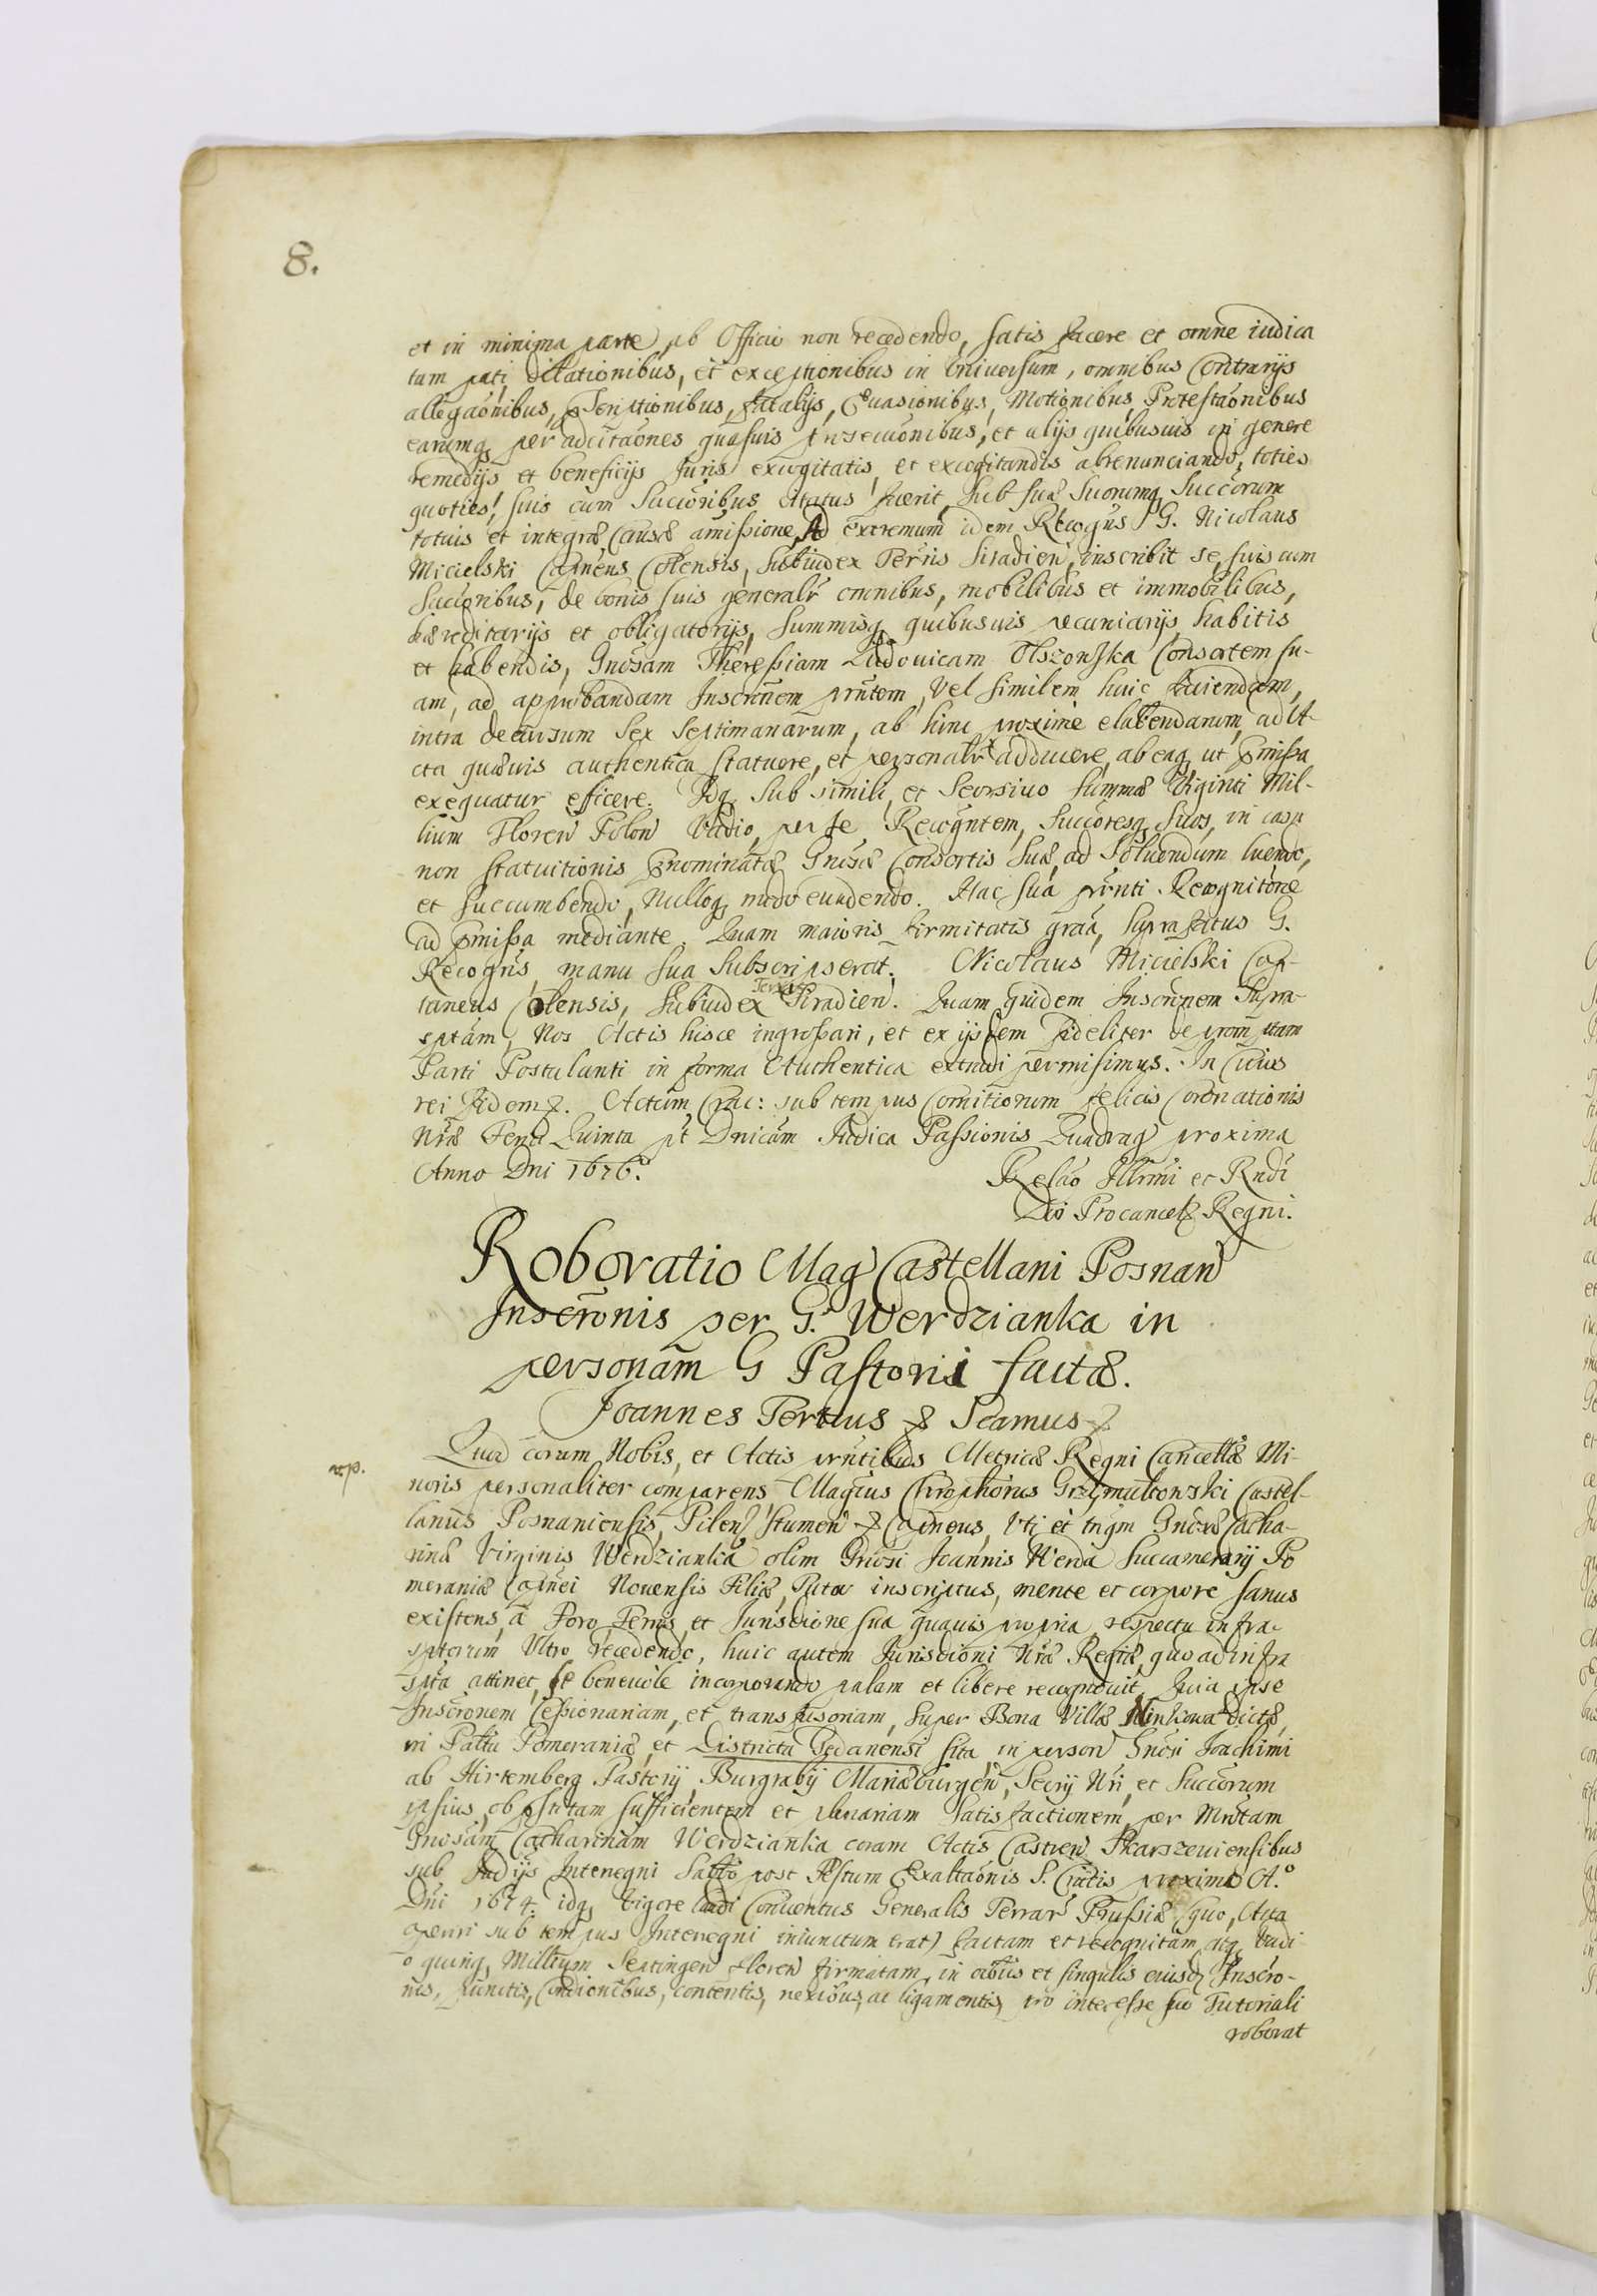 8.
et in minima parte ab Officio non recedendo, satis facere et omne iudica
tum pati, dilationibus, et exceptionibus in Vniversum, omnibus Contrarijs
allegaõnibus, pscriptionibus, fatalijs, Evasionibus, Motionibus, Protestaõnibus
earumq per adcitaões quasuis insecuõnibus, et alijs quibusuis in genere
remedijs et beneficijs Juris excogitatis, et excogitandis abrenunciando, toties
quoties, suis cum Succõribus citatus fuerit, sub sua Suorumq Succorum
totius et integræ Causæ amissione, Ad extremum idem Recogñs G. Nicolaus
Micielski Capñeus Colensis, Subiudex Terris Siradien, inscribit se suis cum
Succoribus, de bonis suis generalr omnibus, mobilibus et immobilibus,
hæreditarijs et obligatorijs, summisq quibusuis pecuniarijs habitis
et habendis, Gnosam Theressiam Ludouicam Olszonska Consortem su-
am, ad approbandam Inscrñem pñtem, Vel similem huic faciendam,
intra decursum Sex Septimanarum, ab hinc proxime elabendarum, ad A-
cta quæuis authentica statuere, et personalr adducere, ab eaq, ut pmissa
exequatur efficere. Idq sub simili, et Seorsiuo summæ Viginti Mil-
lium Floren Polon Vadio, per se Recogñtem, Succoresq Suos, in casu
non statuitionis pnominatæ Gnosæ Consortis suæ, ad Soluendum luendo,
et succumbendo, Nulloq modo euadendo. Hac sua pñti Recognitone
ad pmissa mediante. Quam maioris firmitatis graã, suprafatus G.
Recogñs, manu sua Subscripserat. Nicolaus Micielski Cap-
taneus Colensis, Subiudex Terræ Siradien. Quam quidem Inscrñem Supra-
sptam, Nos Actis hisce ingrossari, et ex ijsdem fideliter depromptam
Parti Postulanti in forma Authentica extradi permisimus. In Cuius
rei fidem. Actum Crac: sub tempus Comitiorum felicis Coronationis
Nræ Feria Quinta pt Dnicam Judica Passionis Quadrag proxima
Anno Dni 1676.
Relao Illrmi et Rndi
Dni Procancell Regni.
Roboratio Mag Castellani Posnan
Inscronis per G. Werdzianka in
personam G Pastorii factæ.
Joannes Tertius Scamus
rp.
Quod coram Nobis, et Actis pñtibus Metricæ Regni Cancellæ Mi-
noris personaliter comparens Magcus Chrophorus Grzymultowski Castel-
lanus Posnaniensis, Pilen Stumen Capneus, Vti et tnqm Gnosæ Catha-
rinæ Virginis Werdzianka olim Gnosi Joannis Werda Succamerarij Po
meraniæ Capnei Nouensis Filiæ, Tutor inscriptus, mente et corpore sanus
existens, a Foro Terris, et Jurisdicione sua quauis propria respectu infra-
sptorum Vltro recedendo, huic autem Jurisdicioni Nræ Regiæ, quo ad infra
spta attinet, se beneuole incorporando palam et libere recognouit, Quia ipse
Inscronem Cessionariam, et transfusoriam, super Bona Villæ Klinkowa dictæ,
in Pallu Pomeraniæ, et Districtu Gedanensi sita, in person Gnosi Joachimi
ab Hirtemberg Pastorij Burgrabij Mariæburgen, Secrij Nri, et Succorum
ipsius, ob pstitam sufficientem et plenariam satisfactionem, per Mntam
Gnosam Catharinam Werdzianka coram Actis Castren Skarszeuiensibus
sub Judijs Interregni Sabbo post Festum Exaltaõnis S. Crucis proximo A.º
Dni 1674. idq Vigore laudi Conuentus Generalis Terrar Prussiæ (quo, Acta
aperiri sub tempus Interregni iniunctum erat) factam et recognitam, atq Vadi-
o quinq Millium Septingen floren firmatam, in oibus et singulis eiusd Inscro-
nis, punctis, Condicionibus, contentis, nexibus, ac ligamentis, pro interesse suo Tutoriali
roborat